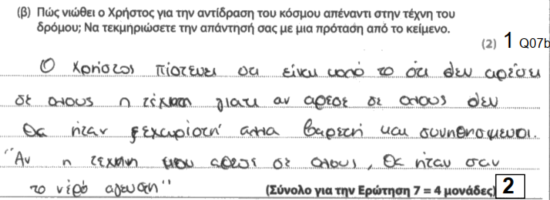 (β) Πώς νιώθει ο Χρήστος για την αντίδραση του κόσμου απέναντι στην τέχνη του
δρόμου; Να τεκμηριώσετε την απάντησή σας με μια πρόταση από το κείμενο.
(2) 1 Q07b
Ο Χρήστος πιστευει οα είναι καλό το ότι δεν αρέσει
σε ολους η τέχνη γιατι αν αρεσε σε ολους δεν
θα ήταν ξεχωριστή αλλα βαρετή και συνηθισμενη.
"Αν η τεχνη μου αρεσε σε ολους, θα ήταν σαν
το νέρό αγευστη"
(Σύνολο για την Ερώτηση 7 = 4 μονάδες) 2